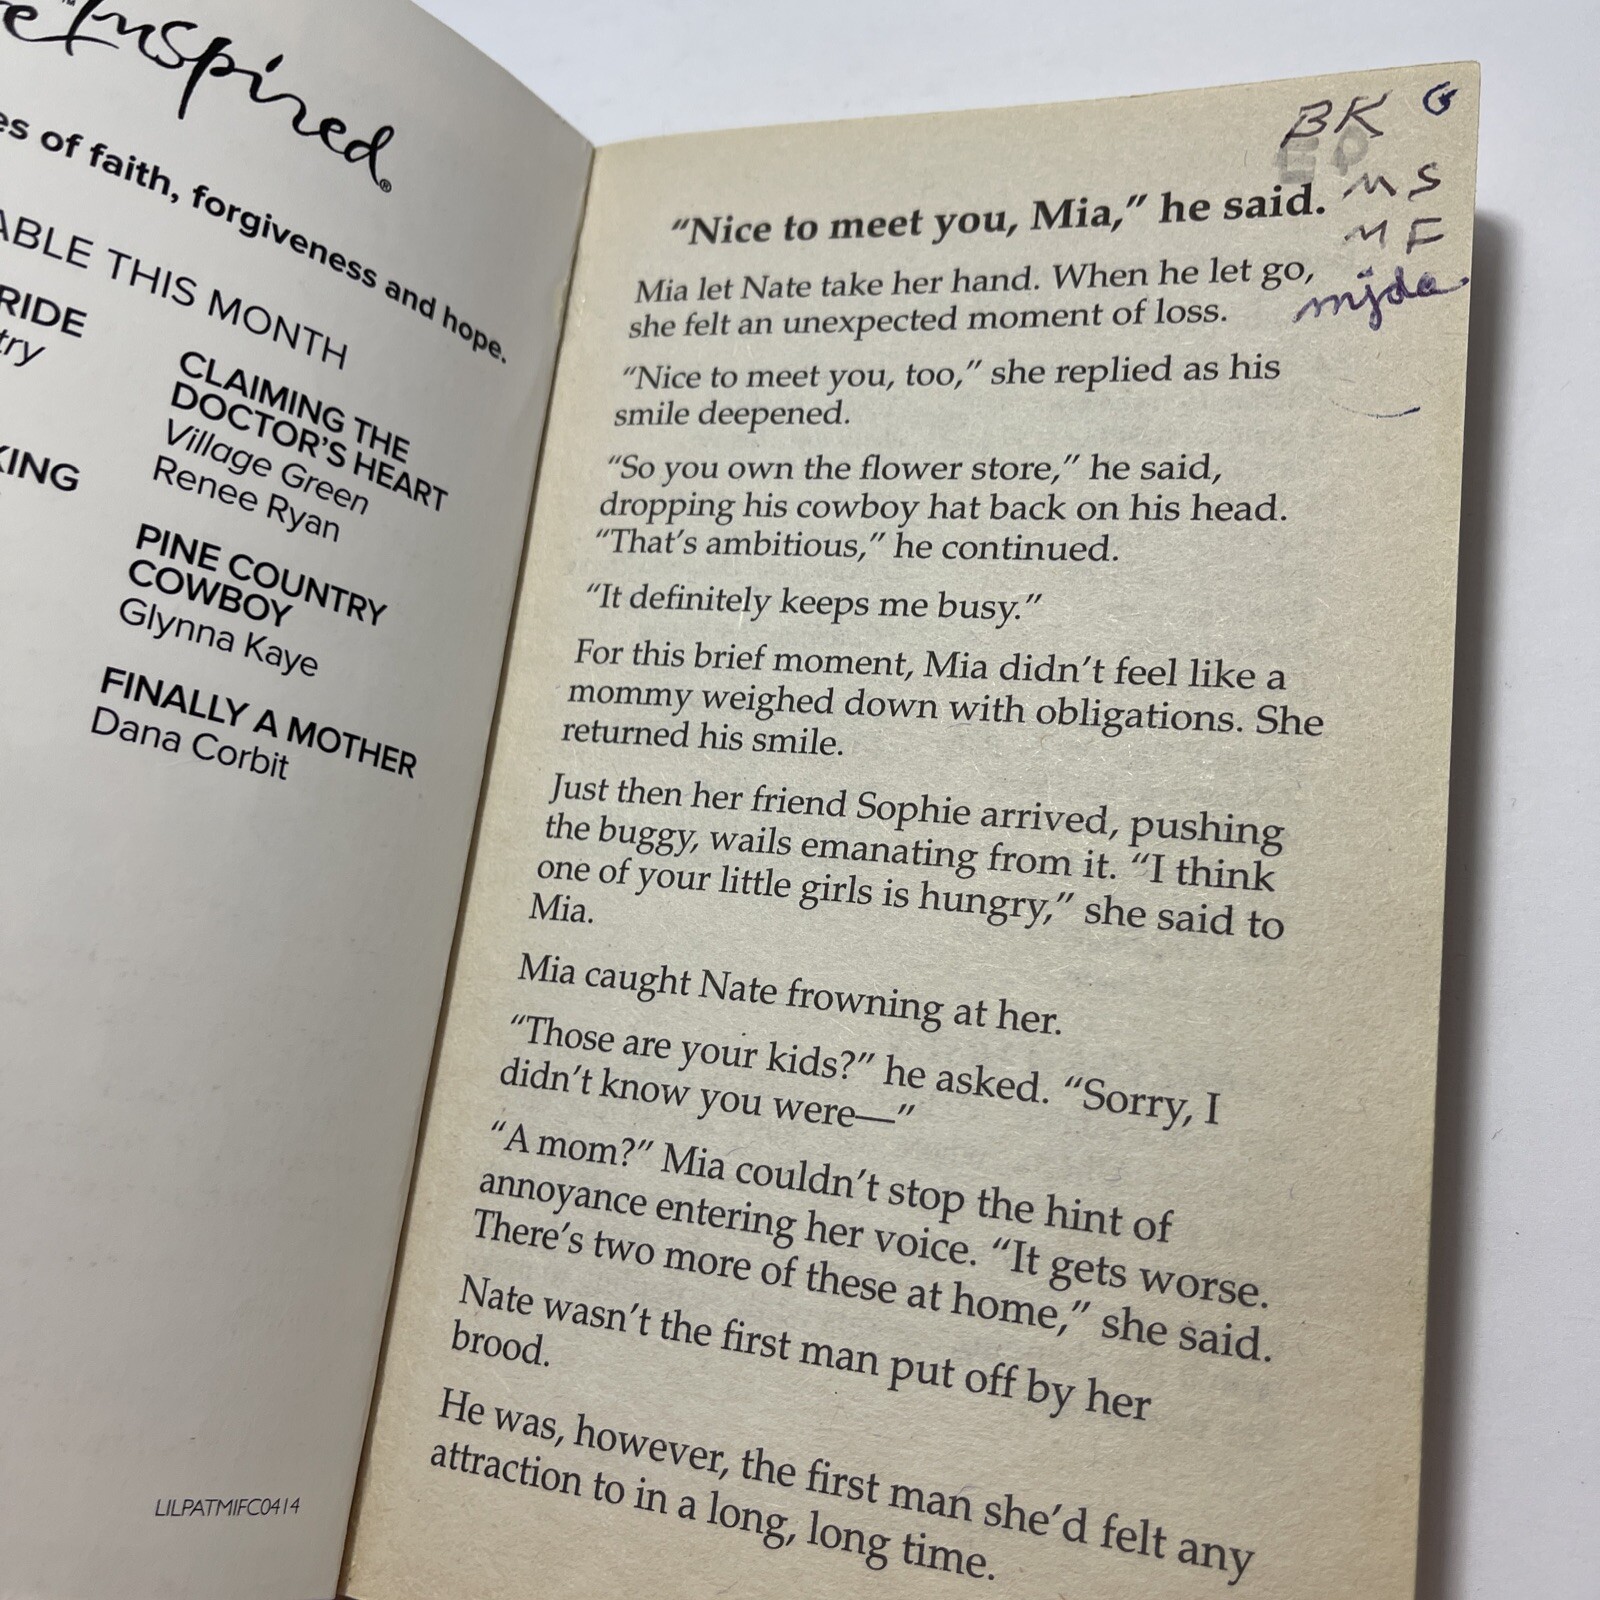 Inspired®
of faith, forgiveness and hope.
THIS MONTH
CLAIMING THE
DOCTOR'S HEART
Village Green
Renee Ryan
PINE COUNTRY
COWBOY
Glynna Kaye
FINALLY A MOTHER
Dana Corbit
LILPATMIFC0414
BK G
MS
MF
mjda
“Nice to meet you, Mia,” he said.
Mia let Nate take her hand. When he let go,
she felt an unexpected moment of loss.
“Nice to meet you, too,” she replied as his
smile deepened.
“So you own the flower store,” he said,
dropping his cowboy hat back on his head.
“That’s ambitious,” he continued.
“It definitely keeps me busy.”
For this brief moment, Mia didn’t feel like a
mommy weighed down with obligations. She
returned his smile.
Just then her friend Sophie arrived, pushing
the buggy, wails emanating from it. “I think
one of your little girls is hungry,” she said to
Mia.
Mia caught Nate frowning at her.
“Those are your kids?” he asked. “Sorry, I
didn’t know you were—”
“A mom?” Mia couldn’t stop the hint of
annoyance entering her voice. “It gets worse.
There’s two more of these at home,” she said.
Nate wasn’t the first man put off by her
brood.
He was, however, the first man she’d felt any
attraction to in a long, long time.